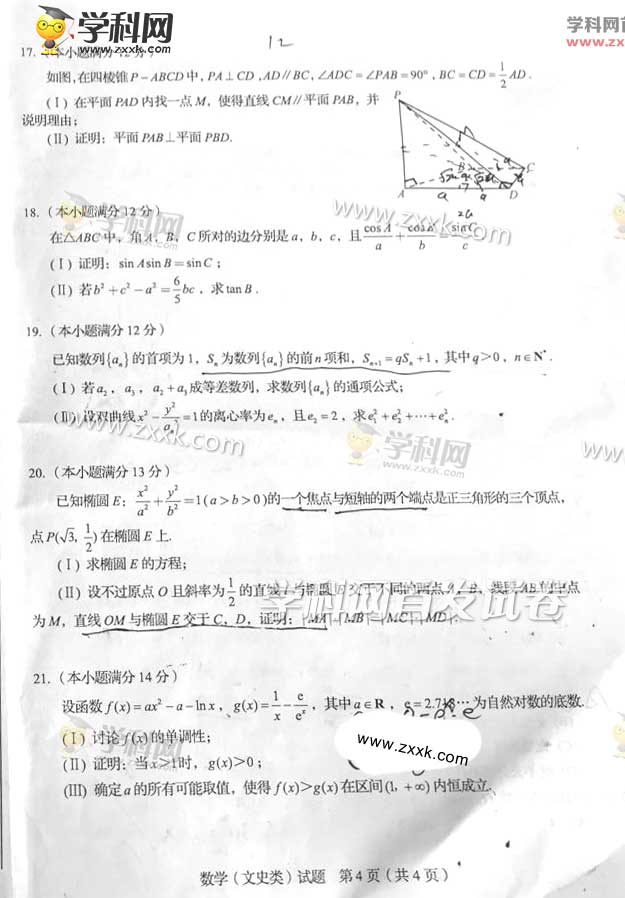 学科网
www.zxxk.com
学科网首
www.zxxk
12
17.（本小题满分12分）
如图,在四棱锥P－ABCD中, PA⊥CD ,AD∥BC, ∠ADC=∠PAB=90°, BC=CD=1/2 AD .
(Ⅰ) 在平面PAD内找一点M，使得直线CM∥平面PAB，并
说明理由；
(Ⅱ) 证明：平面PAB⊥平面PBD.
P
B
C
A
D
a
a
2a
18.（本小题满分12分）
在△ABC中，角A，B，C所对的边分别是a，b，c，且cosA/a + cosB/b = sinC/c
(Ⅰ) 证明：sin A sin B = sin C；
(Ⅱ) 若b²+c²－a²=6/5 bc，求tan B .
学科网
www.zxxk.com
www.zxxk.com
19.（本小题满分12分）
已知数列{aₙ}的首项为1，Sₙ为数列{aₙ}的前n项和，Sₙ₊₁=qSₙ+1，其中q>0，n∈N*.
(Ⅰ) 若a₂，a₃，a₂+a₃成等差数列，求数列{aₙ}的通项公式；
(Ⅱ) 设双曲线x²－y²/aₙ²=1的离心率为eₙ，且e₂=2，求e₁²+e₂²+⋯+eₙ².
www.zxxk.com
学科网
www.zxxk.com
20.（本小题满分13分）
已知椭圆E：x²/a²+y²/b²=1(a>b>0)的一个焦点与短轴的两个端点是正三角形的三个顶点，
点P(√3, 1/2)在椭圆E上.
(Ⅰ) 求椭圆E的方程；
(Ⅱ) 设不过原点O且斜率为1/2的直线l与椭圆E交于不同的两点A，B，线段AB的中点
为M，直线OM与椭圆E交于C，D，证明：|MA|·|MB|=|MC|·|MD|.
学科网首发试卷
21.（本小题满分14分）
设函数f(x)=ax²－a－ln x，g(x)=1/x－e/eˣ，其中a∈R，e=2.718⋯为自然对数的底数.
(Ⅰ) 讨论f(x)的单调性；
(Ⅱ) 证明：当x>1时，g(x)>0；
(Ⅲ) 确定a的所有可能取值，使得f(x)>g(x)在区间(1, +∞)内恒成立.
学科网
www.zxxk.com
www.zxxk.com
数学（文史类）试题 第4页（共4页）